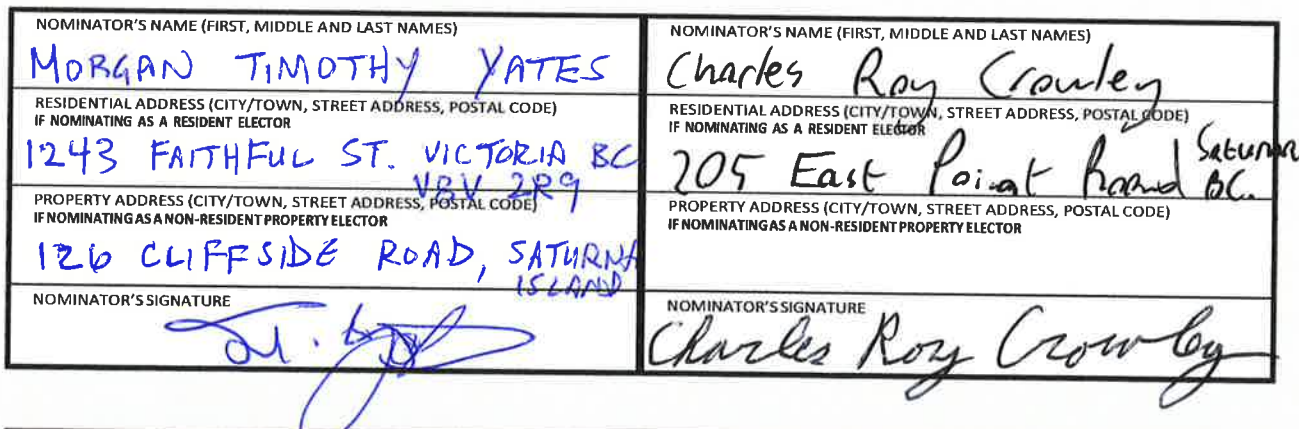 NOMINATOR'S NAME (FIRST, MIDDLE AND LAST NAMES)
MORGAN TIMOTHY YATES
RESIDENTIAL ADDRESS (CITY/TOWN, STREET ADDRESS, POSTAL CODE)
IF NOMINATING AS A RESIDENT ELECTOR
1243 FAITHFUL ST. VICTORIA BC
V8V 2R9
PROPERTY ADDRESS (CITY/TOWN, STREET ADDRESS, POSTAL CODE)
IF NOMINATING AS A NON-RESIDENT PROPERTY ELECTOR
126 CLIFFSIDE ROAD, SATURNA
ISLAND
NOMINATOR'S SIGNATURE
NOMINATOR'S NAME (FIRST, MIDDLE AND LAST NAMES)
Charles Roy Crowley
RESIDENTIAL ADDRESS (CITY/TOWN, STREET ADDRESS, POSTAL CODE)
IF NOMINATING AS A RESIDENT ELECTOR
205 East Point Road Saturna
BC.
PROPERTY ADDRESS (CITY/TOWN, STREET ADDRESS, POSTAL CODE)
IF NOMINATING AS A NON-RESIDENT PROPERTY ELECTOR
NOMINATOR'S SIGNATURE
Charles Roy Crowley